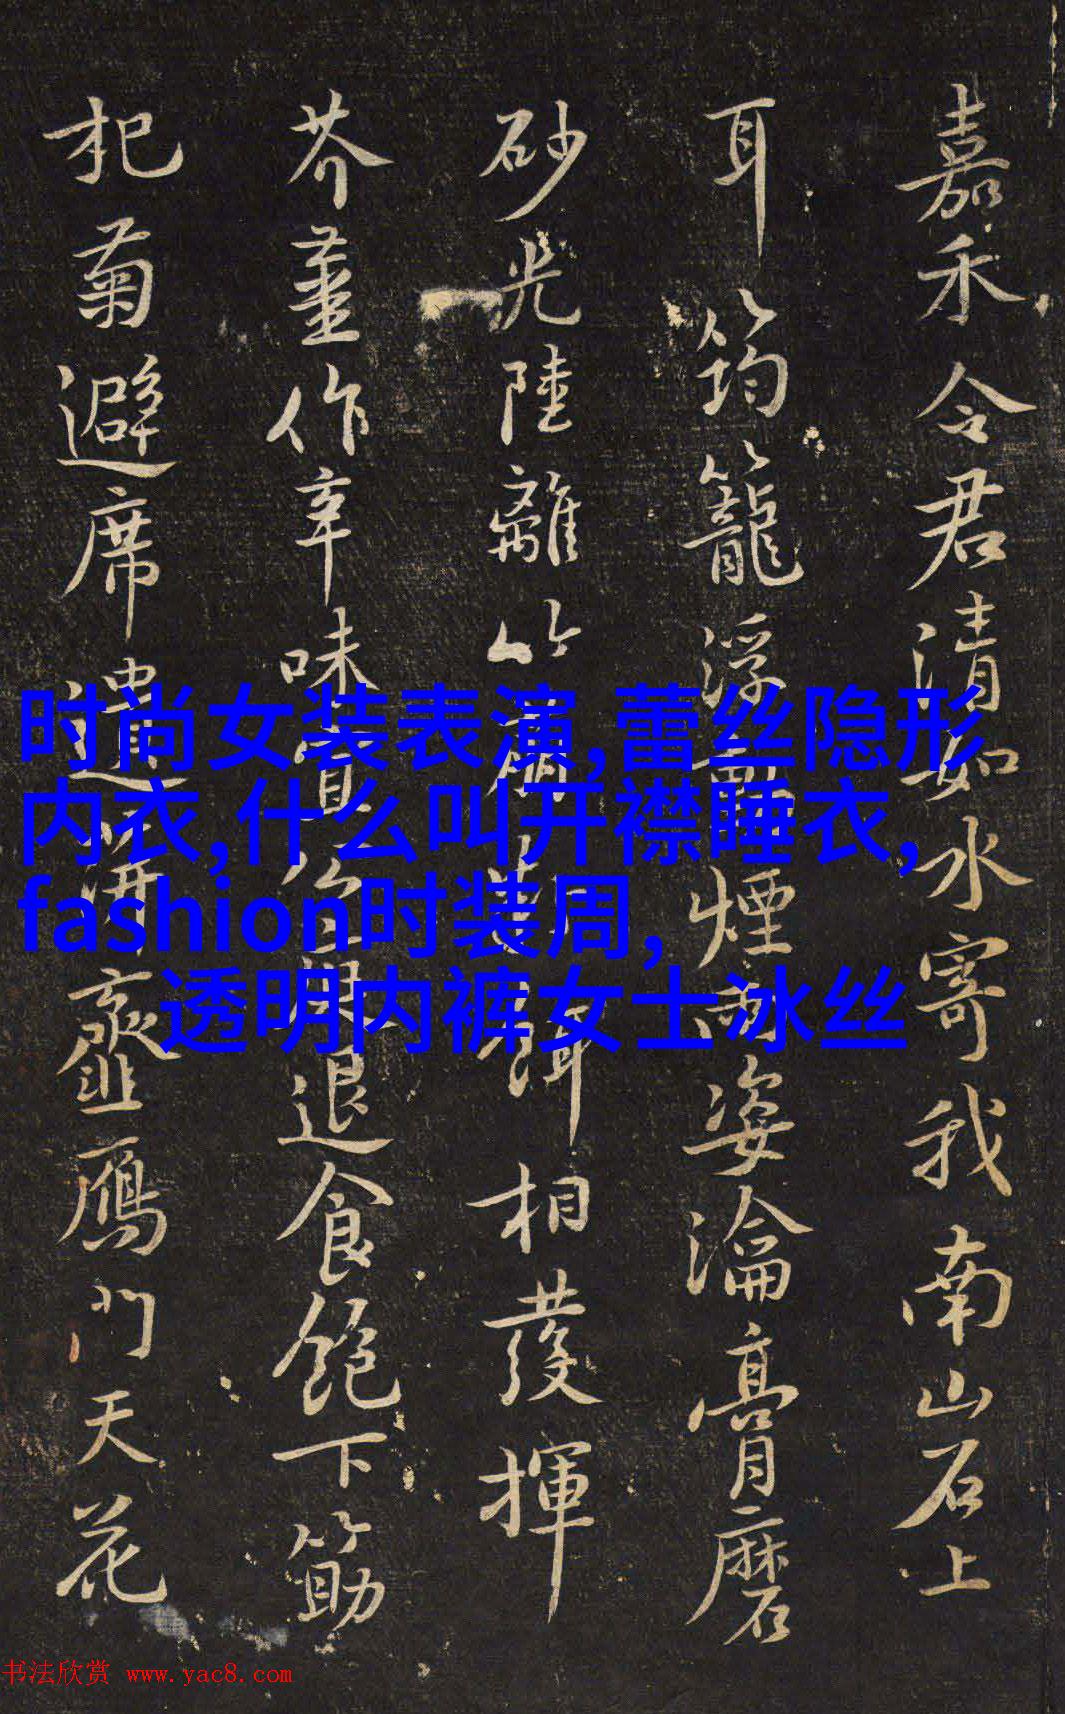 嘉禾令君清如水寄我南山石上
耳筠籠浮動煙雨姿瀹膏磨
砂光陸離竹萌 餌相發揮
芥薑作辛味 公退食飽下筯
杞菊避席遺 齏鴈門天花
时尚女装表演,蕾丝隐形
内衣,什么叫开襟睡衣,
fashion时装周,
透明内裤女士冰丝
书法欣赏 www.yac8.com